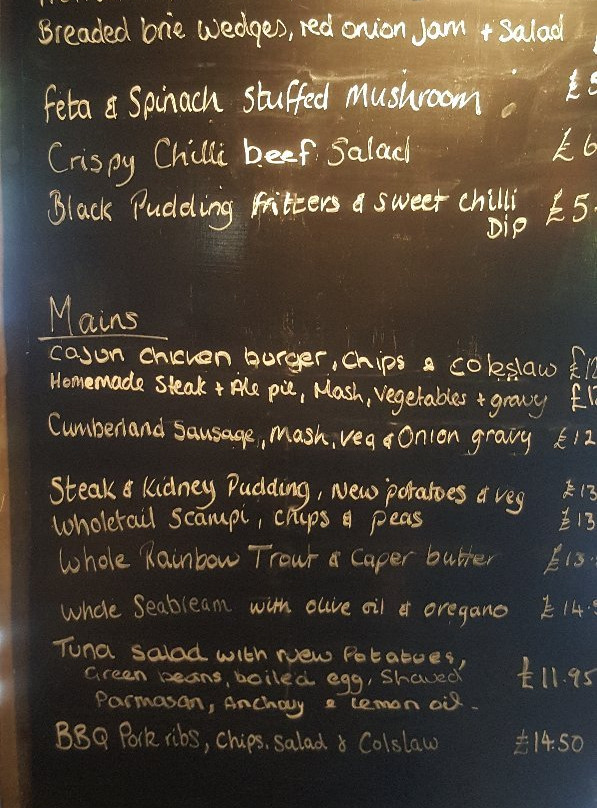 Breaded brie wedges, red onion jam + Salad
feta & Spinach stuffed Mushroom £5
Crispy Chilli beef Salad £6
Black Pudding fritters & sweet chilli £5.
Dip
Mains
Cajun chicken burger, chips & coleslaw £12
Homemade Steak + Ale pie, Mash, Vegetables + gravy £12
Cumberland Sausage, Mash, veg & Onion gravy £12
Steak & Kidney Pudding, New potatoes & veg £13
Wholetail Scampi, chips & peas £13
Whole Rainbow Trout & Caper butter £13.
Whole Seabream with olive oil & oregano £14.
Tuna Salad with New Potatoes,
Green beans, boiled egg, Shaved £11.95
Parmasan, Anchovy & Lemon oil.
BBQ Pork ribs, Chips, Salad & Colslaw £14.50